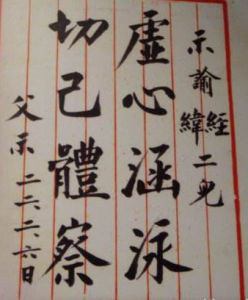 示諭經緯二兒
虛心涵泳
切己體察
父示 二六·二·六日